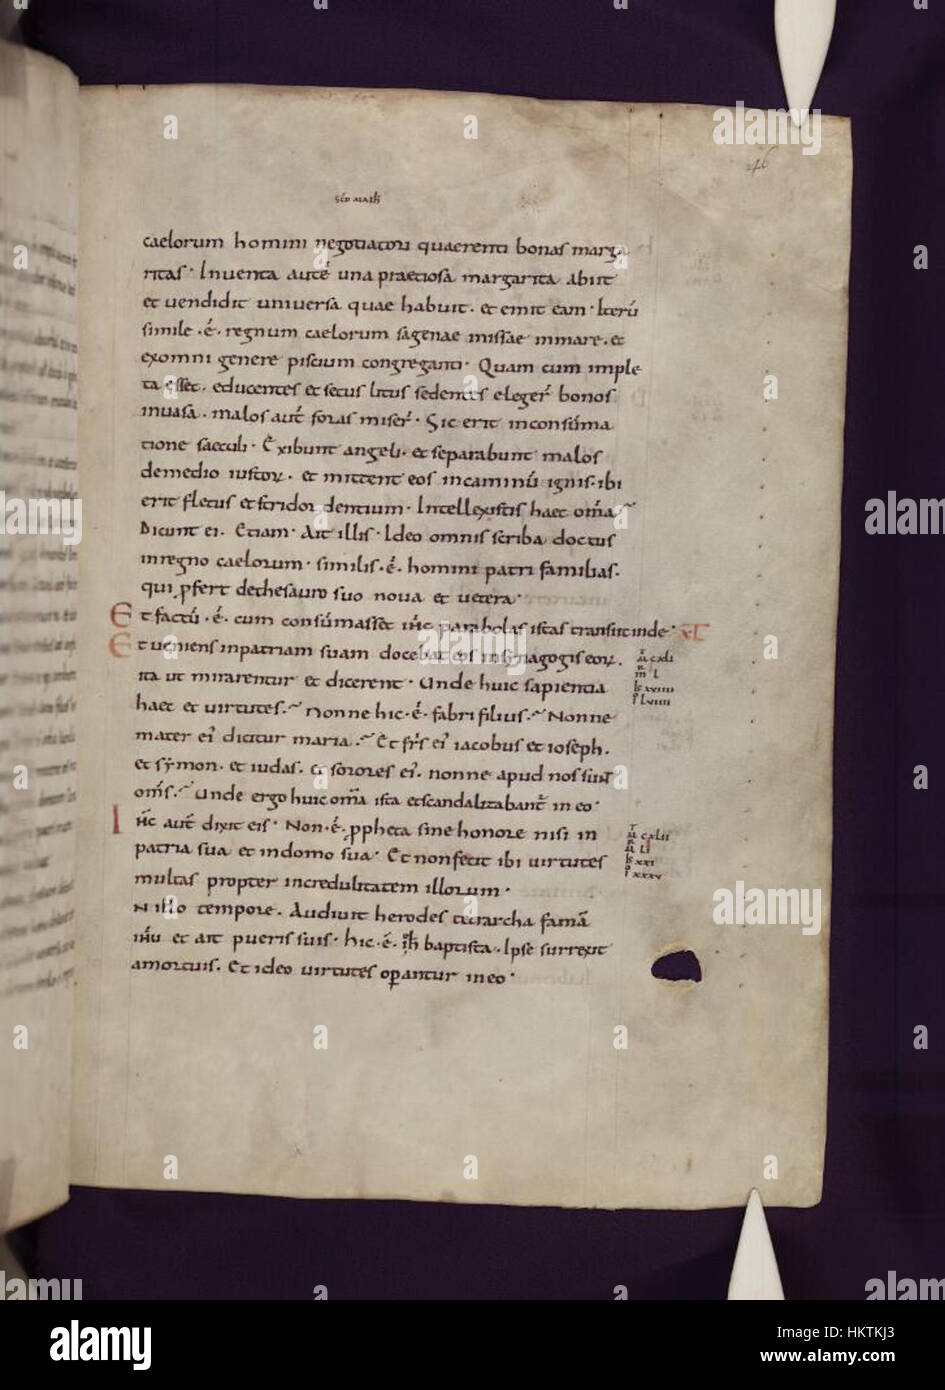 46
SCD MATH
caelorum homini negotiatori quaerenti bonas marga
ritas · Inventa autē una praetiosa margarita abiit
et vendidit universa quae habuit · et emit eam · Iterū
simile · ē · regnum caelorum sagenae missae inmare · et
exomni genere piscium congreganti · Quam cum imple
ta esset · educentes et secus litus sedentes elegeř bonos
invasa · malos aut̄ foras miseř · Sic erit inconsūma
tione saeculi · Exibunt angeli · et separabunt malos
demedio iustoꝝ · et mittent eos incaminū ignis · ibi
erit fletus et stridor dentium · Intellexistis haec om̄a
Dicunt ei · Etiam · Ait illis · Ideo omnis scriba doctus
inregno caelorum · similis · ē · homini patri familias ·
qui ꝓfert dethesauro suo nova et vetera ·
Et factū · ē · cum consūmasset ih̄c parabolas istas transiit inde ·
Et veniens inpatriam suam docebat eos insynagogis eoꝝ ·
ita ut mirarentur et dicerent · Unde huic sapientia
haec et virtutes · Nonne hic · ē · fabri filius · Nonne
mater ei' dicitur maria · Et fr̄s ei' iacobus et ioseph ·
et symon · et iudas · & sorores ei' · nonne apud nos sunt
om̄s · Unde ergo huic om̄a ista et scandalizabant̄ in eo ·
Ih̄c aut̄ dixit eis · Non · ē · ꝓpheta sine honore nisi in
patria sua et indomo sua · Et non fecit ibi virtutes
multas propter incredulitatem illorum ·
N illo tempore · Audivit herodes tetrarcha famā
ih̄u et ait pueris suis · hic · ē · ioh̄ baptista · Ipse surrexit
amortuis · Et ideo virtutes oꝑantur in eo ·
M cxli
m L
lc xviiii
M cxlii
M LI
lc xxi
xxxv
alamy
Image ID: HKTKJ3
www.alamy.com